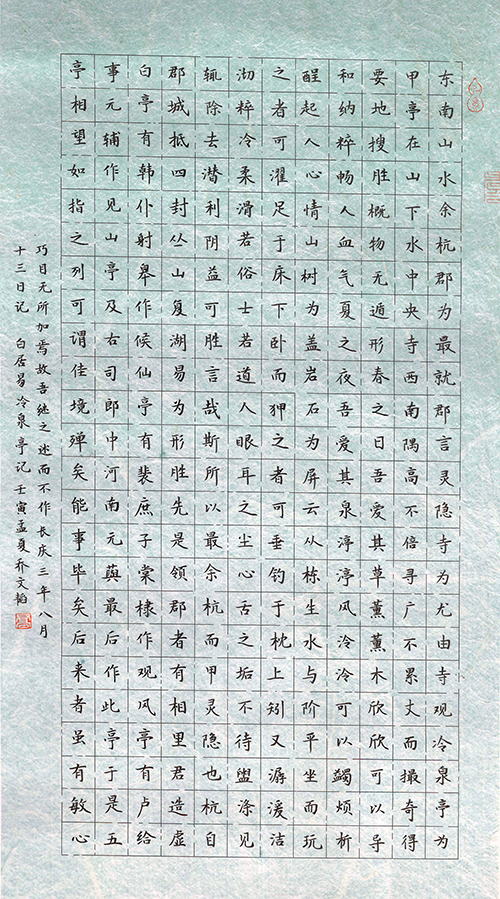 东南山水余杭郡为最就郡言灵隐寺为尤由寺观冷泉亭为
甲亭在山下水中央寺西南隅高不倍寻广不累丈而撮奇得
要地搜胜概物无遁形春之日吾爱其草薰薰木欣欣可以导
和纳粹畅人血气夏之夜吾爱其泉渟渟风泠泠可以蠲烦析
醒起人心情山树为盖岩石为屏云从栋生水与阶平坐而玩
之者可濯足于床下卧而狎之者可垂钓于枕上矧又潺湲洁
沏粹冷柔滑若俗士若道人眼耳之尘心舌之垢不待盥涤见
辄除去潜利阴益可胜言哉斯所以最余杭而甲灵隐也杭自
郡城抵四封丛山复湖易为形胜先是领郡者有相里君造虚
白亭有韩仆射皋作候仙亭有裴庶子棠棣作观风亭有卢给
事元辅作见山亭及右司郎中河南元藇最后作此亭于是五
亭相望如指之列可谓佳境殚矣能事毕矣后来者虽有敏心
巧目无所加焉故吾继之述而不作长庆三年八月
十三日记 白居易冷泉亭记 壬寅孟夏乔文韬